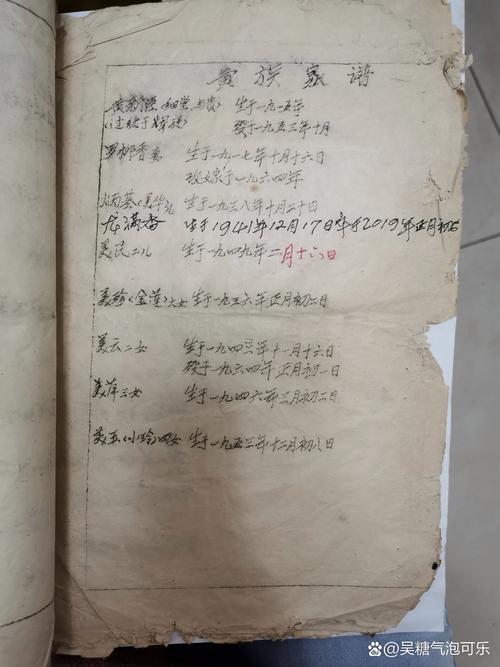 黄族家谱
黄 德(细堂 贵) 生于一九一五年
(过继于 ) 殁于一九五三年十月
罗柳香妻 生于一九一七年十月十六日
改嫁于一九六四年
炳基(美华)儿 生于一九三八年十月二十日
龙满香 生于1941年12月17日 于2019年正月初
美民二儿 生于一九四九年二月十六日
美珍(金莲)大女 生于一九三六年正月初二日
美云二女 生于一九四三年十一月十六日
殁于一九六四年正月初一日
美萍三女 生于一九四六年三月初二日
美玉(小玲)四女 生于一九五三年十二月初八日
@吴糖气泡可乐